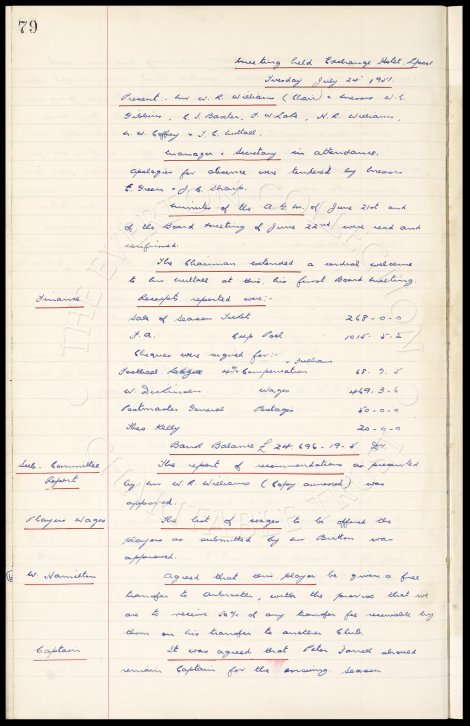 79
Meeting held Exchange Hotel, L'pool
Tuesday July 24th 1951.
Present. Mr W. R. Williams (Chair) & Messrs W. C.
Gibbins, C. S. Baxter, F. W. Lake, N. R. Williams,
W. Coffey & T. C. Nuttall.
Manager & Secretary in attendance.
Apologies for absence were tendered by Messrs
E. Green & J. C. Sharp.
Minutes of the A.G.M. of June 21st and
of the Board Meeting of June 22nd were read and
confirmed.
The Chairman extended a cordial welcome
to Mr Nuttall at this, his first Board Meeting.
Finance
Receipts reported were:-
Sale of Season Tickets 268-0-0
F.A. Cup Pool 1015-5-2
Cheques were signed for:-
Football League 4% Compensation 68-7-5
W. Dickinson Wages 469-3-6
Postmaster General Postages 50-0-0
Theo Kelly 20-0-0
Bank Balance £ 24,696-19-5 Dr.
Sub-Committee
Report
The report of recommendations as presented
by Mr W. R. Williams (Copy annexed) was
approved.
Players Wages
The list of wages to be offered the
players as submitted by Mr Britton was
approved.
W. Hamilton
Agreed that this player be given a free
transfer to, with the proviso that we
are to receive 50% of any transfer fee receivable by
them on his transfer to another Club.
Captain
It was agreed that Peter Farrell should
remain Captain for the ensuing season
THE EVERTON COLLECTION